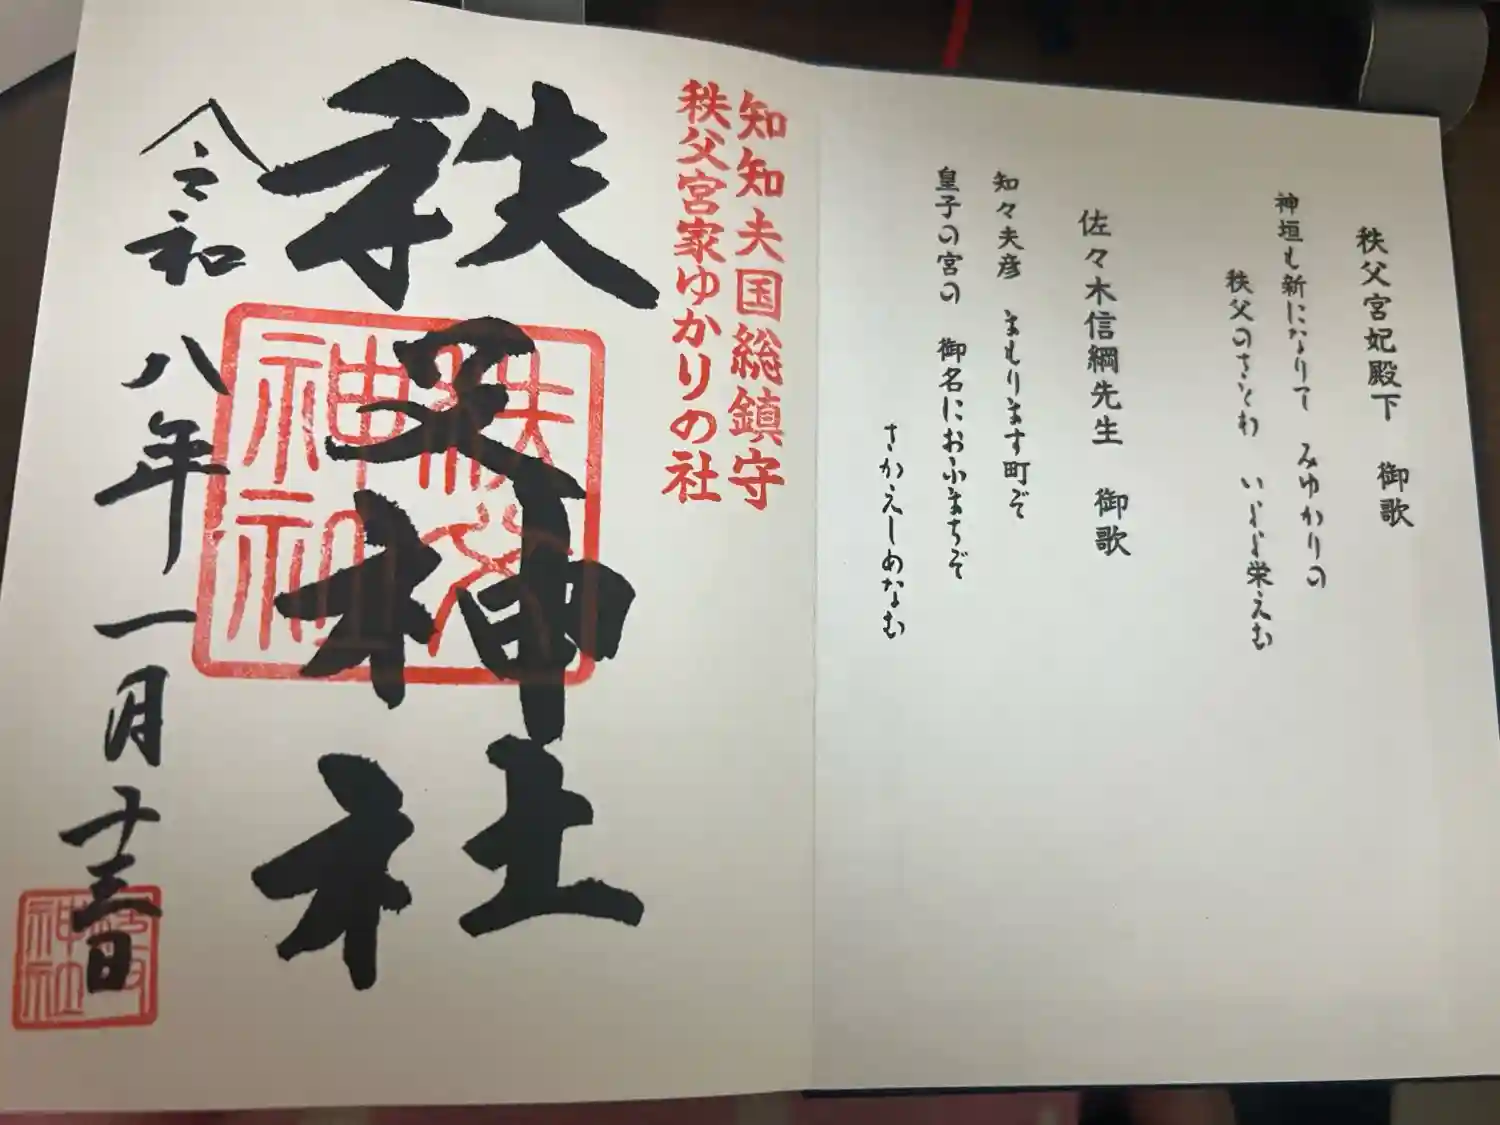 秩父宮妃殿下　御歌
神垣も新になりて　みゆかりの
秩父のさとわ　いよよ栄えむ
佐々木信綱先生　御歌
知々夫彦　まもります町ぞ
皇子の宮の　御名におふまちぞ
さかえしめなむ
知知夫国総鎮守
秩父宮家ゆかりの社
秩父神社
秩父神社
令和八年一月十三日